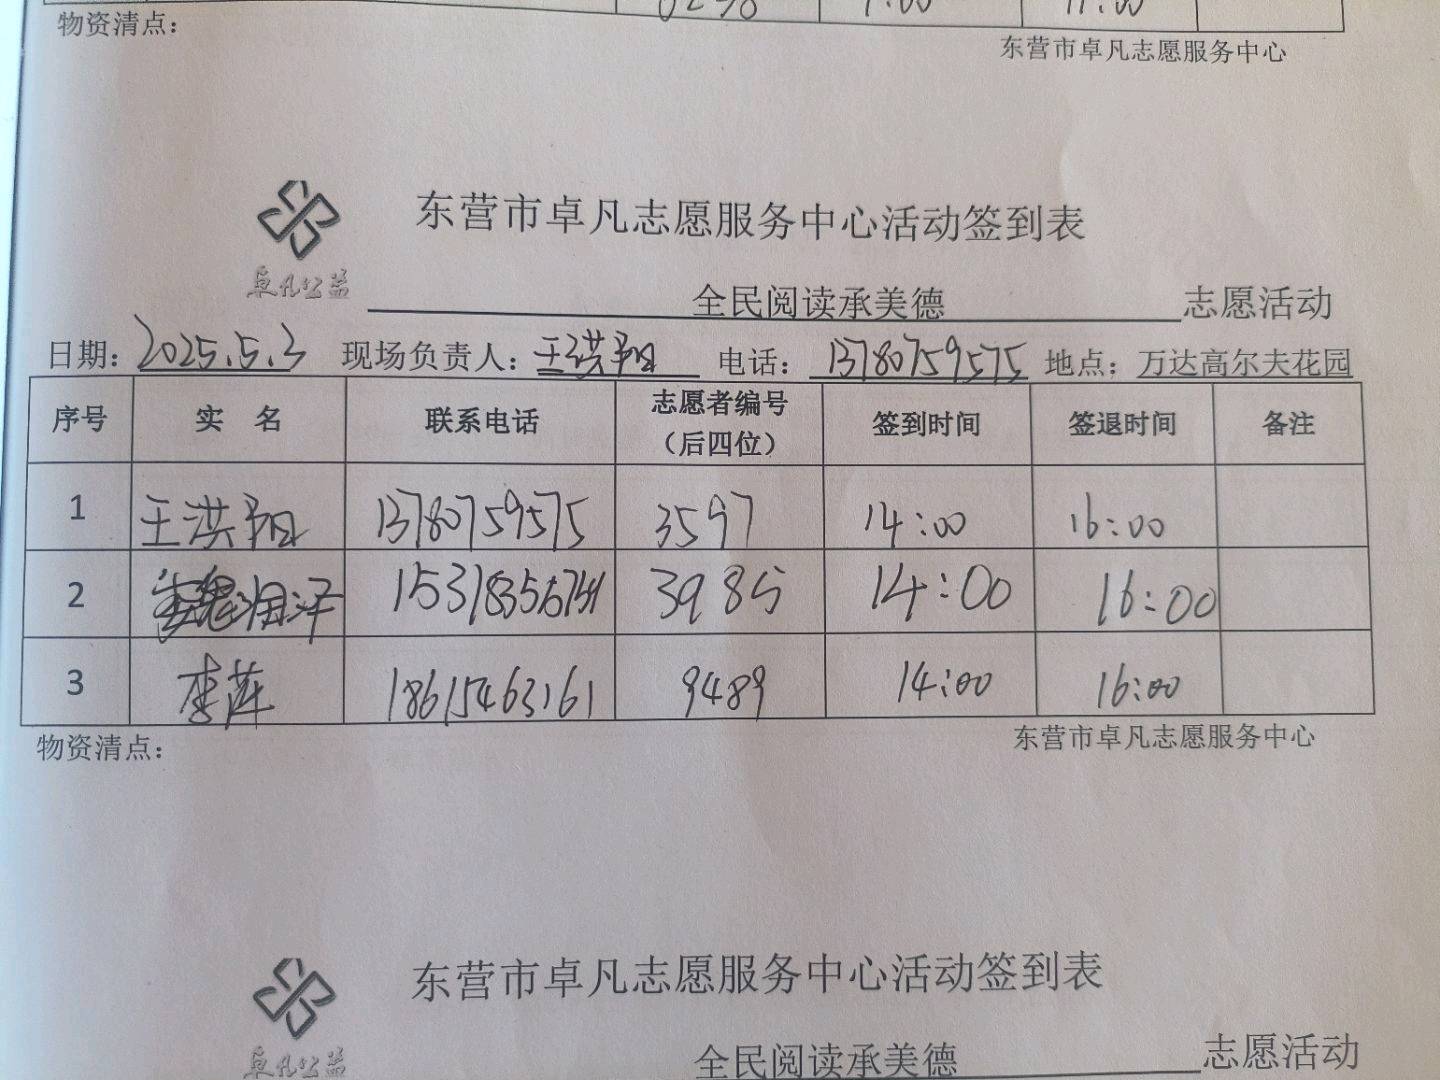 7:00 11:00
物资清点：
东营市卓凡志愿服务中心
东营市卓凡志愿服务中心活动签到表
卓凡公益
全民阅读承美德 志愿活动
日期：2025.5.3 现场负责人：王洪翔 电话：13780759575 地点：万达高尔夫花园
序号 实 名 联系电话 志愿者编号（后四位） 签到时间 签退时间 备注
1 王洪翔 13780759575 3597 14:00 16:00
2 3985 14:00 16:00
3 李萍 18615463161 9489 14:00 16:00
物资清点：
东营市卓凡志愿服务中心
东营市卓凡志愿服务中心活动签到表
卓凡公益
全民阅读承美德 志愿活动